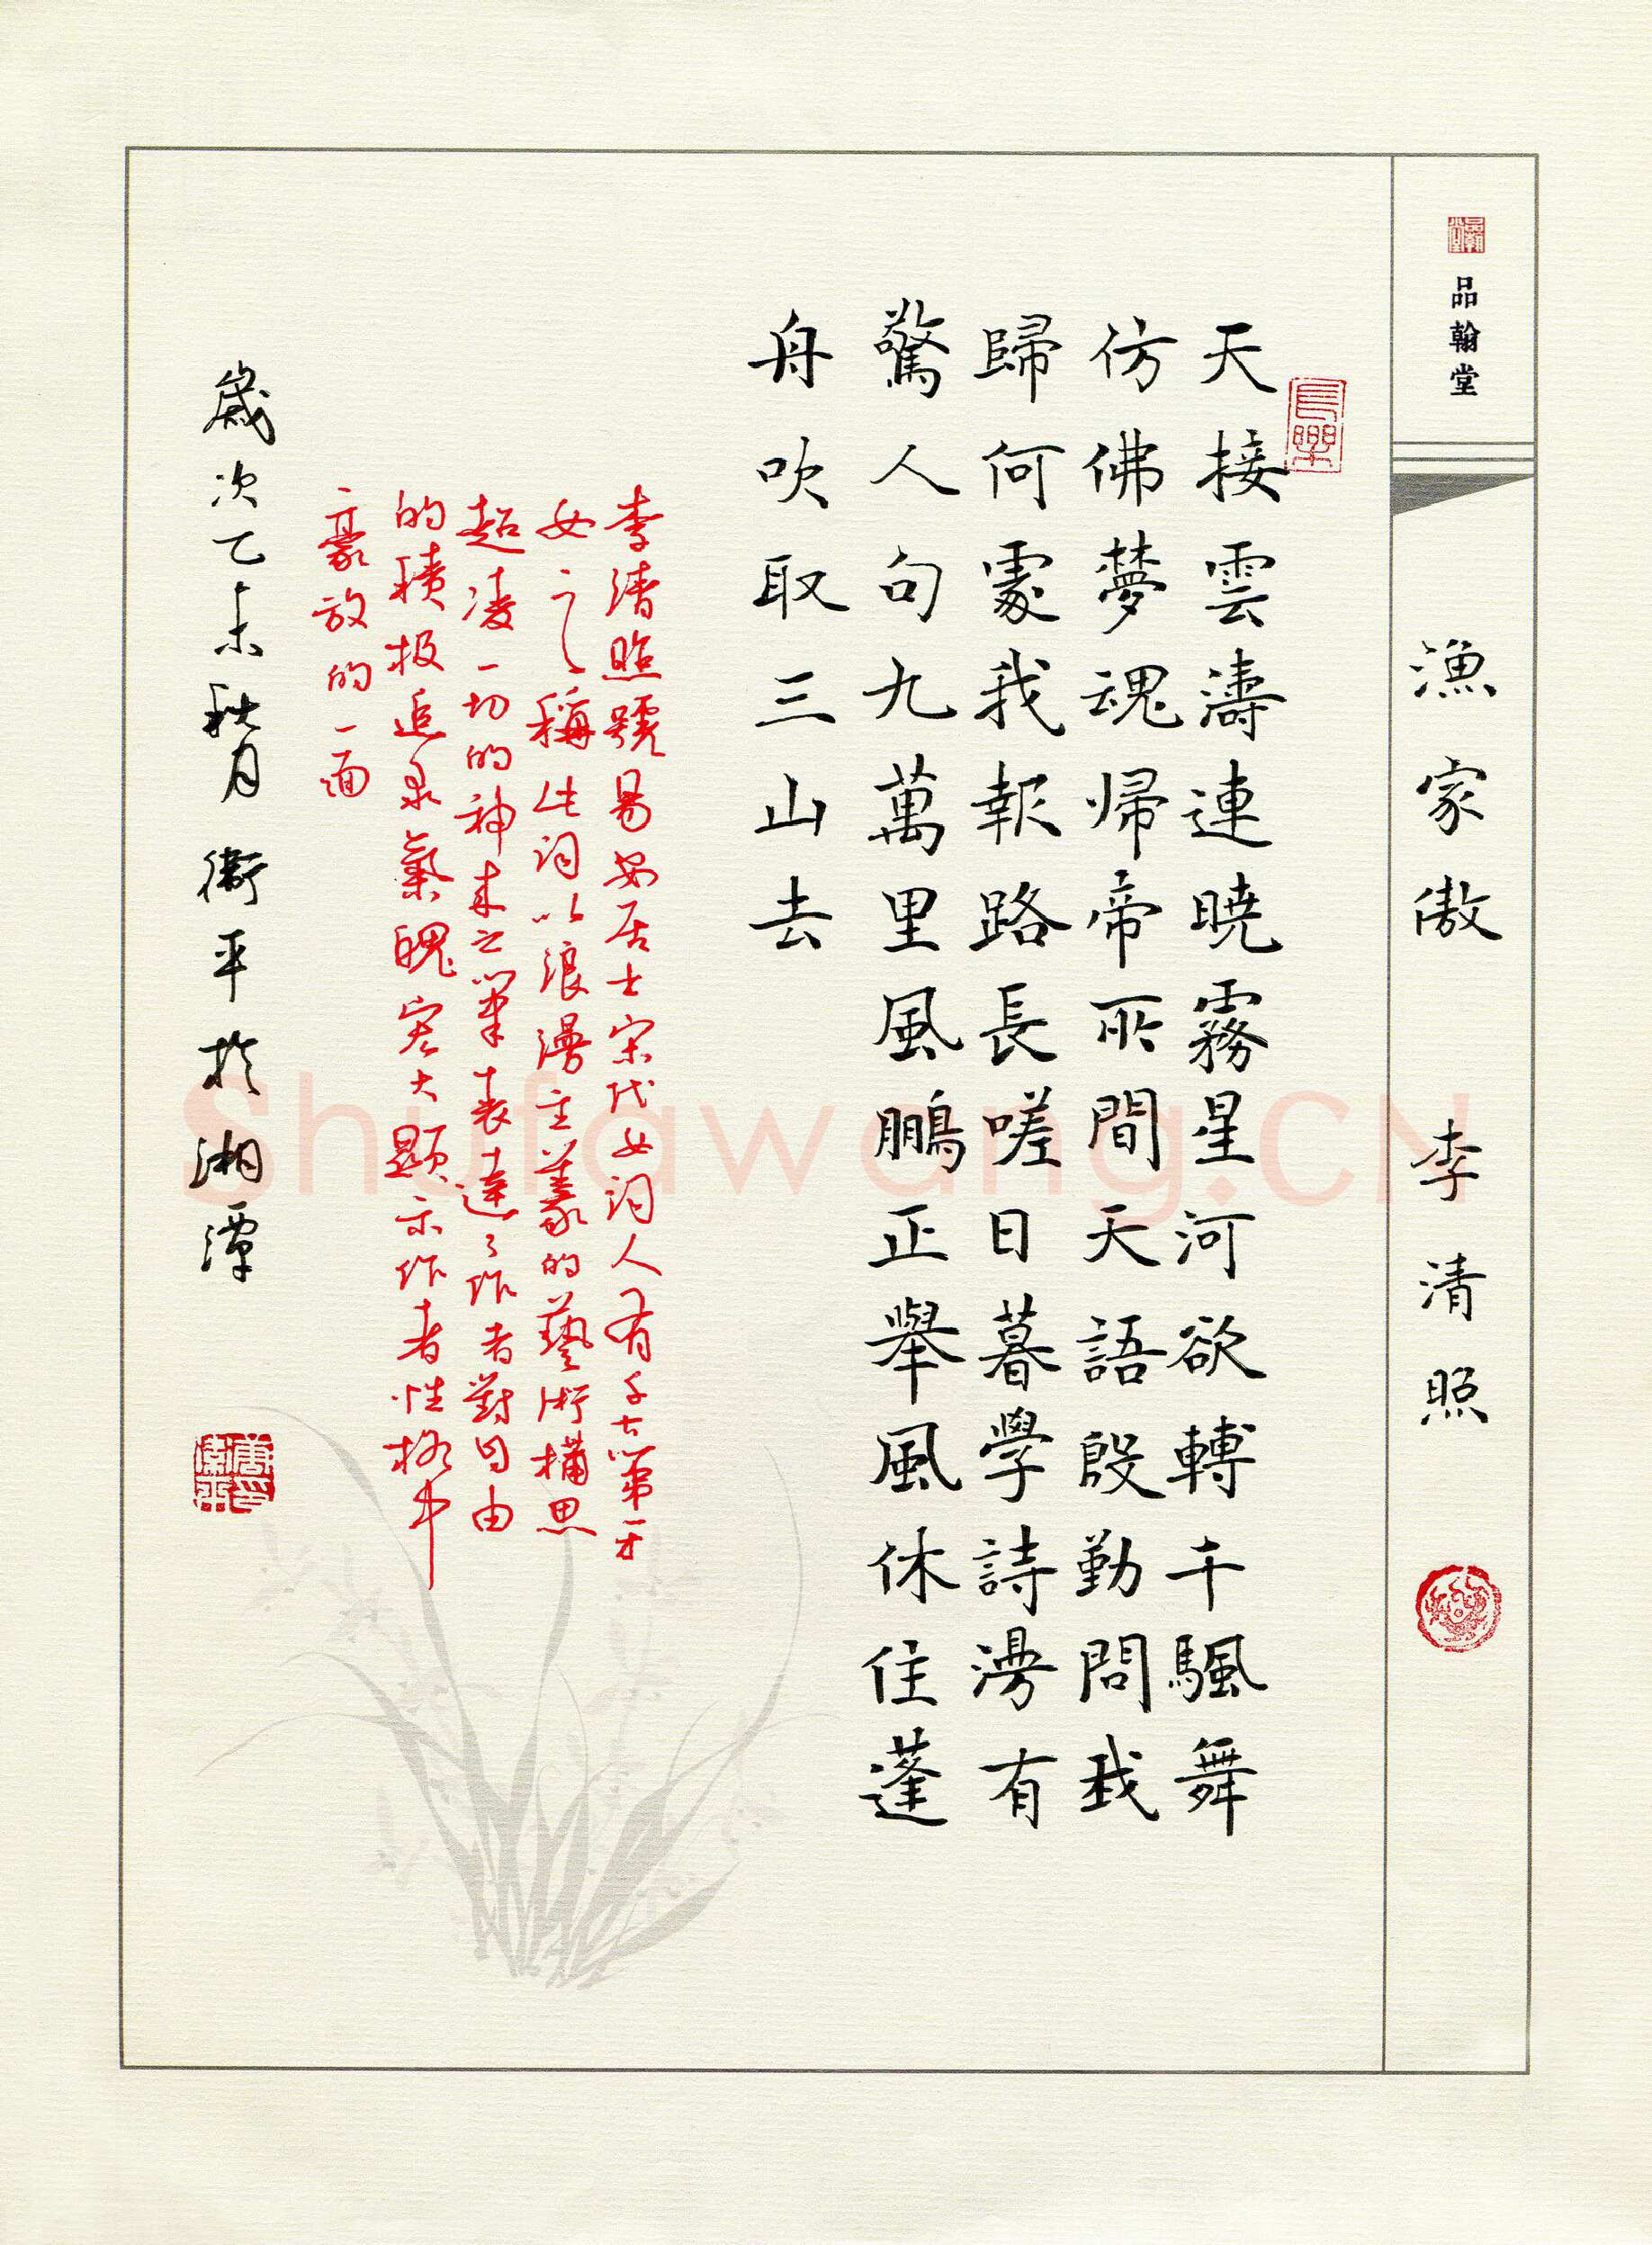 品翰堂
漁家傲 李清照
長樂
天接雲濤連曉霧星河欲轉千颿舞
仿佛夢魂归帝所間天語殷勤問我
歸何處我報路長嗟日暮學詩漫有
驚人句九萬里風鵬正舉風休住蓬
舟吹取三山去
李清照號易安居士宋代女詞人有千古第一才
女之稱此詞以浪漫主義的藝術構思
超凌一切的神来之筆表達了作者對自由
的積极追求氣魄宏大顯示作者性格中
豪放的一面
歲次乙未秋月衛平於湘潭
Shufawang.CN